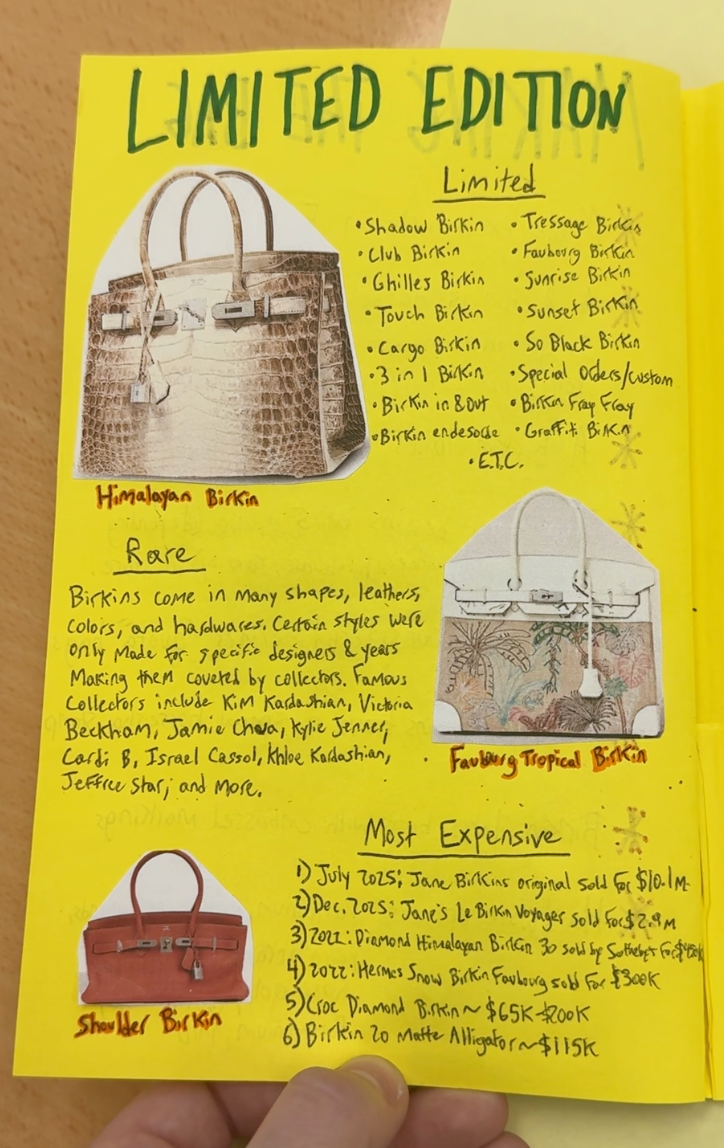 LIMITED EDITION
Limited
• Shadow Birkin
• Club Birkin
• Ghilles Birkin
• Touch Birkin
• Cargo Birkin
• 3 in 1 Birkin
• Birkin in & Out
• Birkin endesode
• Tressage Birkin
• Faubourg Birkin
• Sunrise Birkin
• Sunset Birkin
• So Black Birkin
• Special Orders/custom
• Birkin Fray Fray
• Graffiti Birkin
• E.T.C.
Himalayan Birkin
Rare
Birkins come in many shapes, leathers,
colors, and hardwares. Certain styles were
only Made for specific designers & years
Making them coveted by collectors. Famous
Collectors include Kim Kardashian, Victoria
Beckham, Jamie Chua, Kylie Jenner,
Cardi B, Israel Cassol, Khloe Kardashian,
Jeffree Star, and More.
Faubourg Tropical Birkin
Most Expensive
1) July 2025: Jane Birkins original sold for $10.1M
2) Dec. 2025: Jane's Le Birkin Voyager sold for $2.9M
3) 2022: Diamond Himalayan Birkin 30 sold by Sothebys for $450K
4) 2022: Hermes Snow Birkin Faubourg sold for $300K
5) Croc Diamond Birkin ~ $65K-$200K
6) Birkin 20 Matte Alligator ~ $115K
Shoulder Birkin